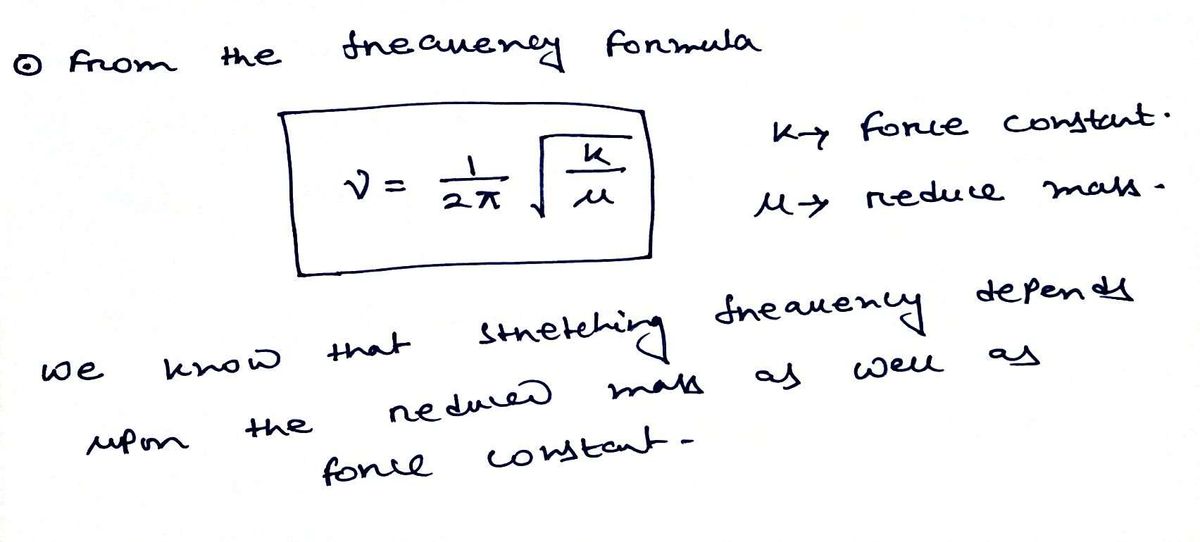 ⊙ From the frequency formula
ν = 1/2π √k/μ
k → force constant.
μ → reduce mass.
we know that stretching frequency depends
upon the reduced mass as well as
force constant.